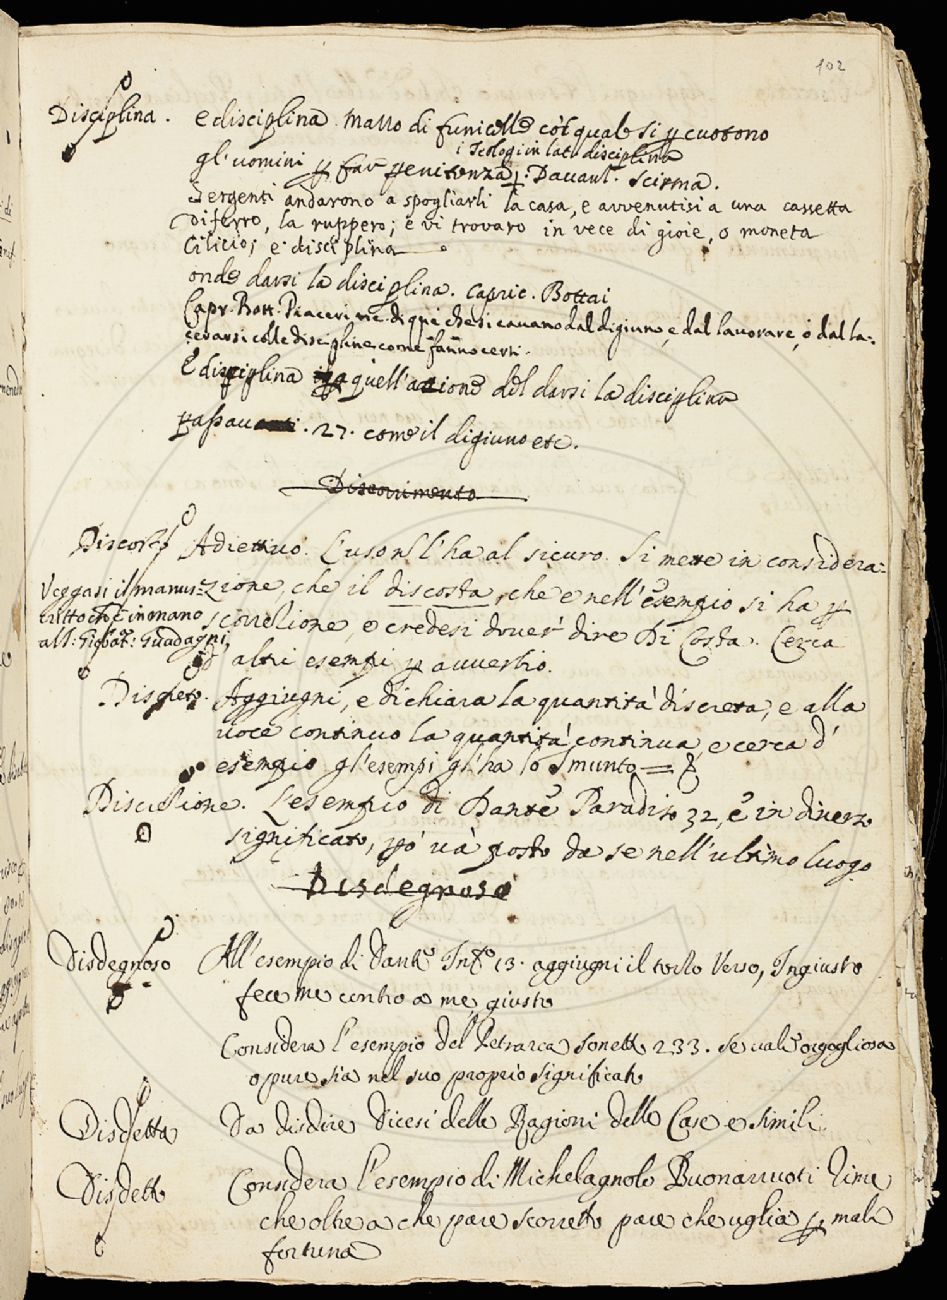 102
Disciplina. e disciplina Mazzo di funicelle cō quale si ꝑcuotono
i Teologi in lat. disciplina
gl'uomini ꝑ far penitenza. Davanz. Scisma.
Sergenti andarono a spogliarli la casa, e avvenutisi a una cassetta
di ferro, la ruppero; e vi trovaro in vece di gioie, o moneta
Cilicio; e disciplina
onde darsi la disciplina. Capric. Bottai
Capr. Bott. Piaceri ne di qué che si cavano dal digiuno, e dal lavorare, ó dal la-
cerarsi colle discipline come fanno certi.
E disciplina quell'azione del darsi la disciplina
Passavanti. 27. come il digiuno etc.
Discorrimento
Discosto Adiettivo. L'uson l'ha al sicuro. Si mette in considera-
Veggasi il manus-
zione, che il discosta, che e nell'esempio si ha ꝑ
critto ch'è in mano
scorrezione, e credesi dover dire Di Costa. Cerca
all. Giobat: Guadagni,
altri esempi ꝑ avverbio.
Discreto. Aggiugni, e dichiara la quantità discreta, e alla
voce continuo la quantità continua, e cerca d'
esempio gl'esempi gl'ha lo Smunto
Discrezione. L'esempio di Dante Paradiso 32, è in diverso
significato, ꝑò và posto da se nell'ultimo luogo
Disdegnoso
Disdegnoso All'esempio di Dante Inf. 13. aggiugni il terzo Verso, Ingiusto
fece me contro a me giusto
Considera l'esempio del Petrarca sonetto 233. se vale orgogliosa
oppure sia nel suo proprio significato
Disdetta Da disdire dicesi delle Ragioni delle Case e simili
Disdetto Considera l'esempio di Michelagnolo Buonarruoti Rime
che oltre a che pare scorretto pare che voglia ꝑ mala
fortuna